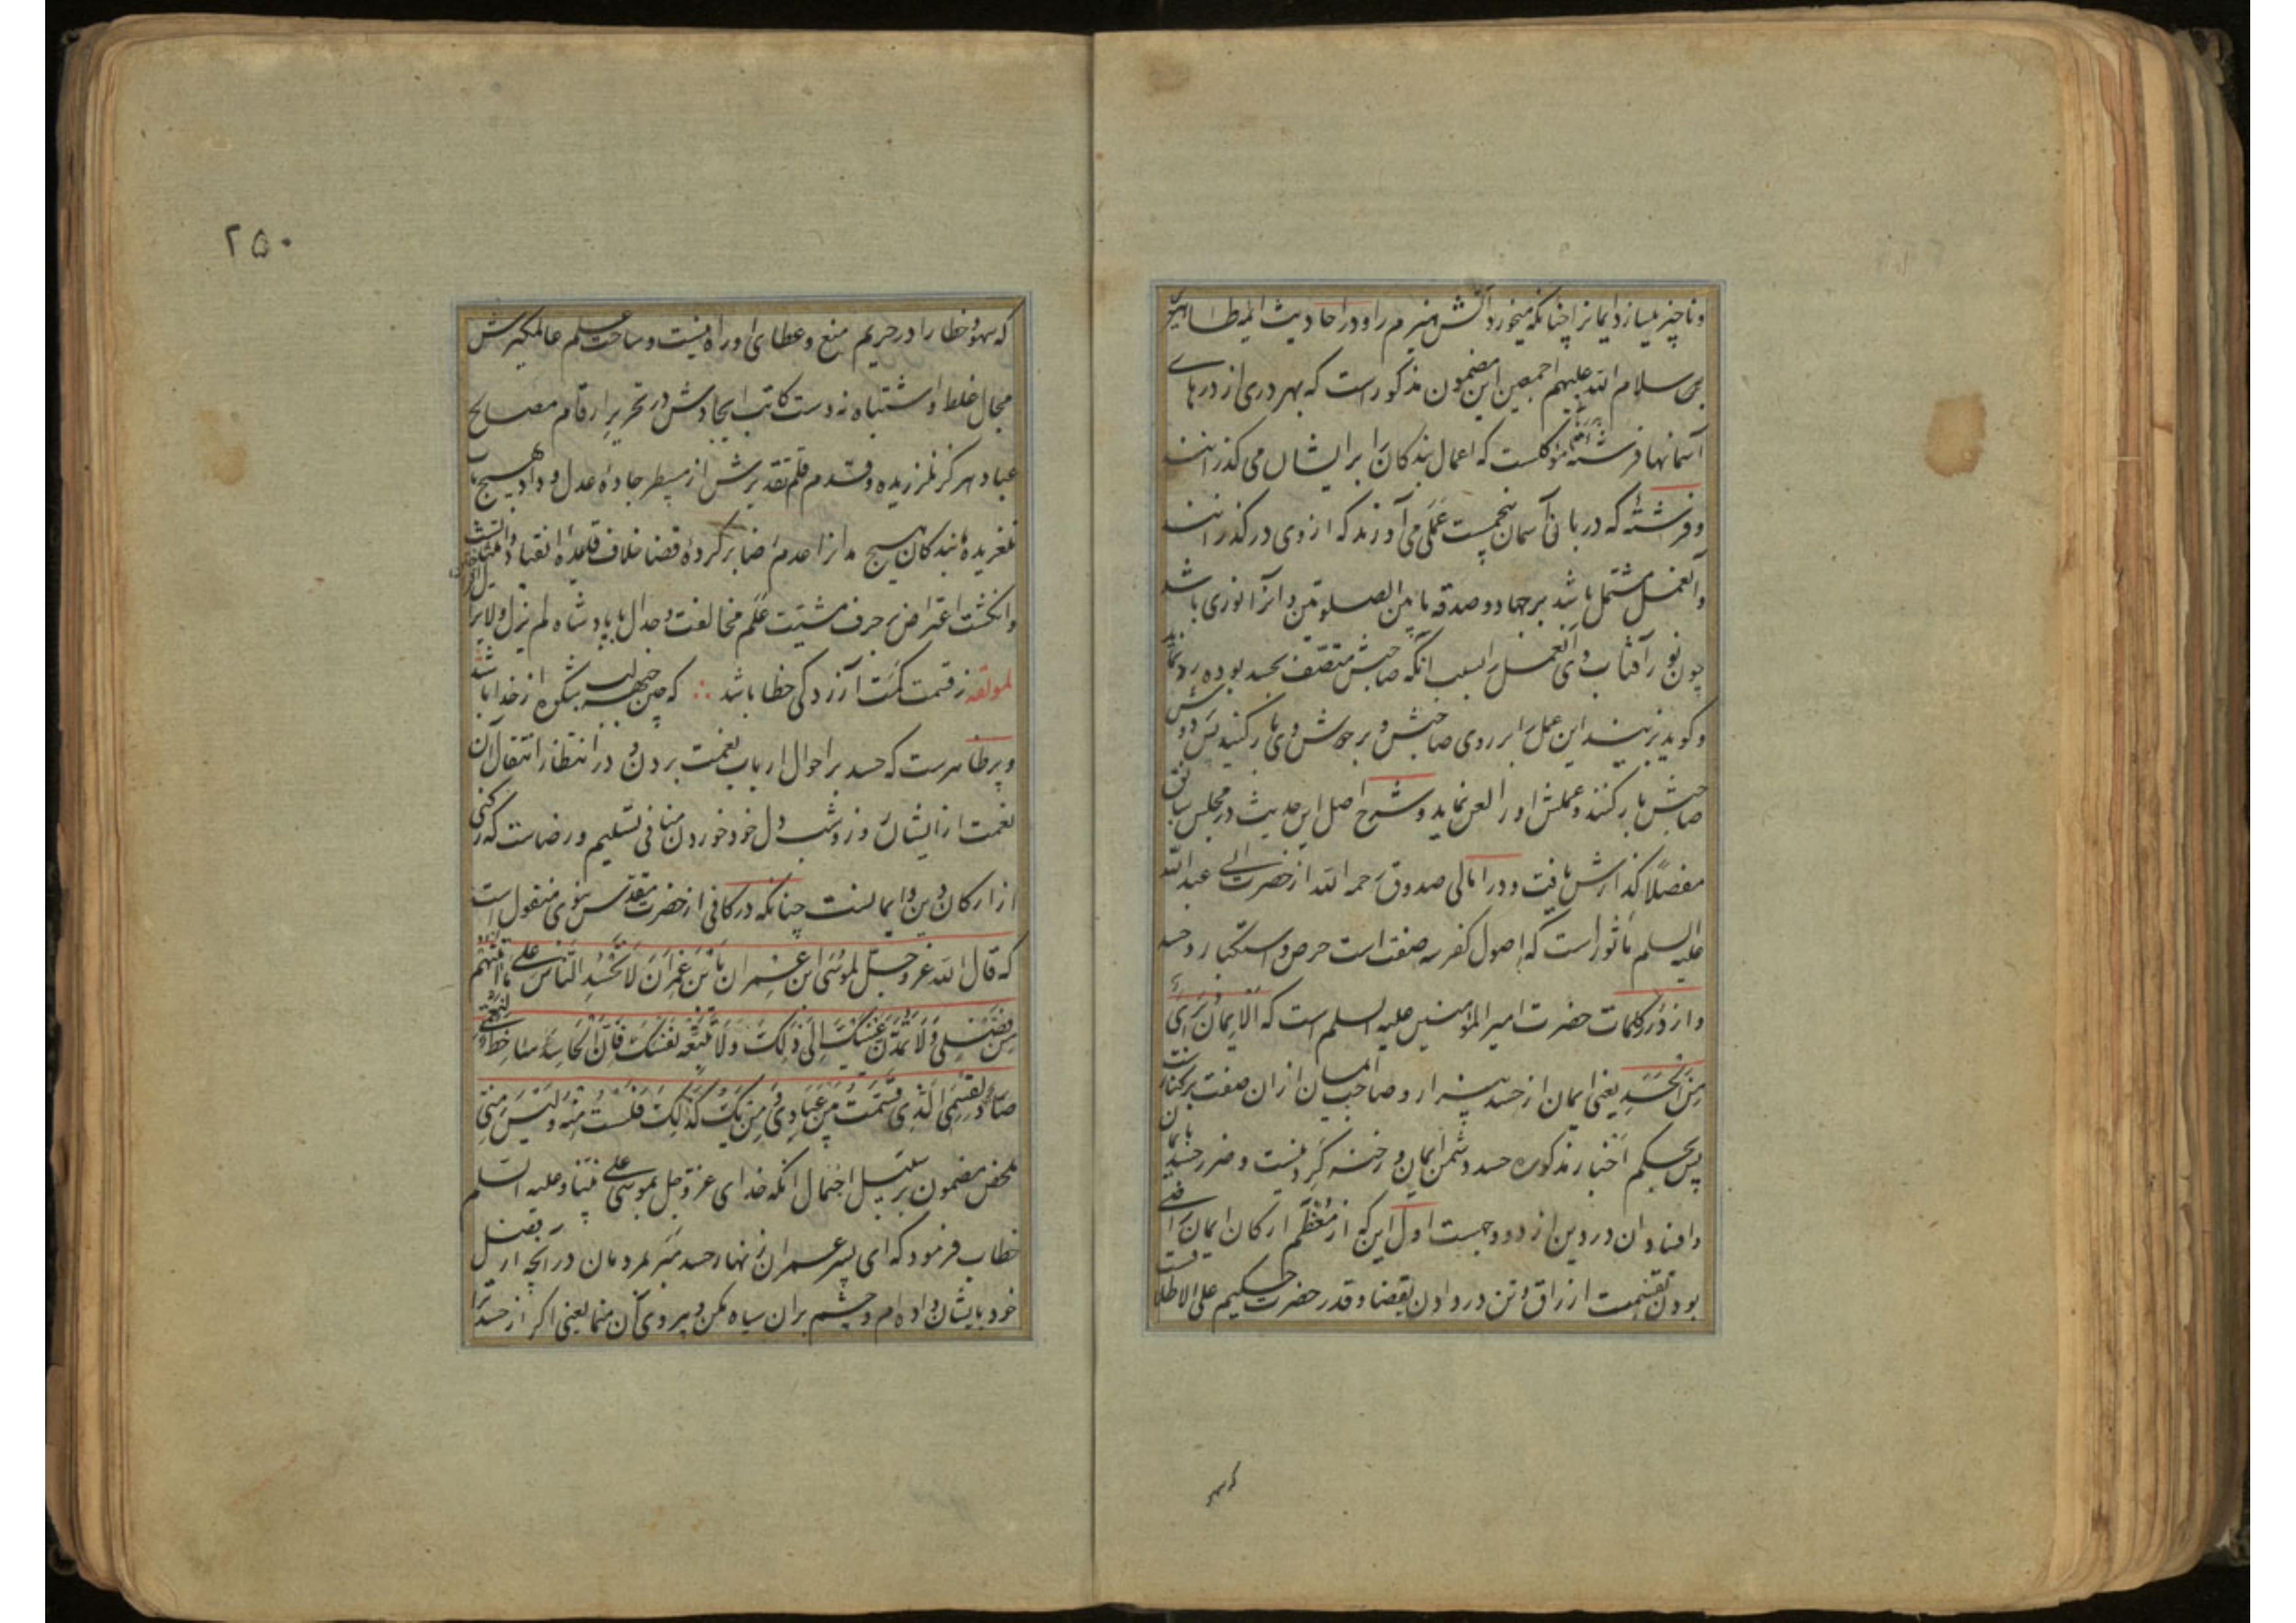 و ناچیز میسازد ایمانرا چنانکه میخورد آتش هیزم را و در احادیث ائمه طاهرین
سلام الله علیهم اجمعین این مضمون مذکور است که بهر دری از درهای
آسمانها فرشتهٔ موکلست که اعمال بندکان را بر ایشان می کذرانند
و فرشتهٔ که دربانی آسمان پنجمست عملی می آورند که از وی درکذرانند
و آنعمل مشتمل باشد بر جهاد و صدقه ما بین الصلوتین و آنرا نوری باشد
چون نور آفتاب وی آنعمل را بسبب انکه صاحبش متصف بحسد بوده رد نماید
و کوید بزنید این عمل را بر روی صاحبش و بر دوشش وی بار کنید پس بر دوش
صاحبش بار کنند و عملش او را لعن نماید و شرح اصل این حدیث در مجلس سابق
مفصلاً کذارش یافت و در امالی صدوق رحمه الله از حضرت ابی عبدالله
علیه السلم ماثور است که اصول کفر سه صفت است حرص و استکبار و حسد
و از درر کلمات حضرت امیر المؤمنین علیه السلم است که الایمان بری
من الحسد یعنی ایمان از حسد بیزار و صاحب ایمان از ان صفت برکنار است
پس بحکم اخبار مذکوره حسد دشمن ایمان و رخنه کر دینست و ضرر حسد بایمان
و افتادن در دین از دو وجهست اول این که از معظم ارکان ایمان راضی
بودن بقسمت ارزاق و تن در دادن بقضا و قدر حضرت حکیم علی الاطلاقست
که سهو
۲۵۰
که سهو و خطا را در حریم منع و عطای او راه نیست و ساحت علم عالمکیرش
مجال غلط و اشتباه نه دست کاتب ایجادش در تحریر ارقام مصالح
عباد هرکز نلرزیده و قدم قلم تقدیرش از مسطر جادهٔ عدل و داد بهیچ باب
نلغزیده بندکان هیچ مدان را عدم رضا بر کردهٔ قضا خلاف قاعدهٔ انقیاد و
وانکشت اعتراض بر حرف مشیت علم مخالفت و جدال با پادشاه لم یزل ولایزال
لمولفه ز قسمت کمت آزردکی خطا باشد ∴ که چین جبهه شکوه از خدا باشد
و پر ظاهرست که حسد بر احوال ارباب نعمت بردن و در انتظار انتقال آن
نعمت از ایشان روز و شب دل خود خوردن منافی تسلیم و رضاست که رکنی
از ارکان دین و ایمانست چنانکه در کافی از حضرت مقدس نبوی منقول است
که قال الله عز و جل لموسی ابن عمران یابن عمران لا تحسد الناس علی ما آتیتهم
من فضلی ولا تمدن عینیک الی ذلک ولا تتبعه نفسک فان الحاسد ساخط لنعمی
صاد لقسمی الذی قسمت بین عبادی و من یک کذلک فلست منه و لیس منی
ملخص مضمون بر سبیل اجمال انکه خدای عز و جل بموسی علی نبینا و علیه السلم
خطاب فرمود که ای پسر عمران زنهار حسد مبر بمردمان در آنچه از فضل
خود بایشان داده ام و چشم بران سیاه مکن و پیروی آن منما یعنی اکر از حسد ترا